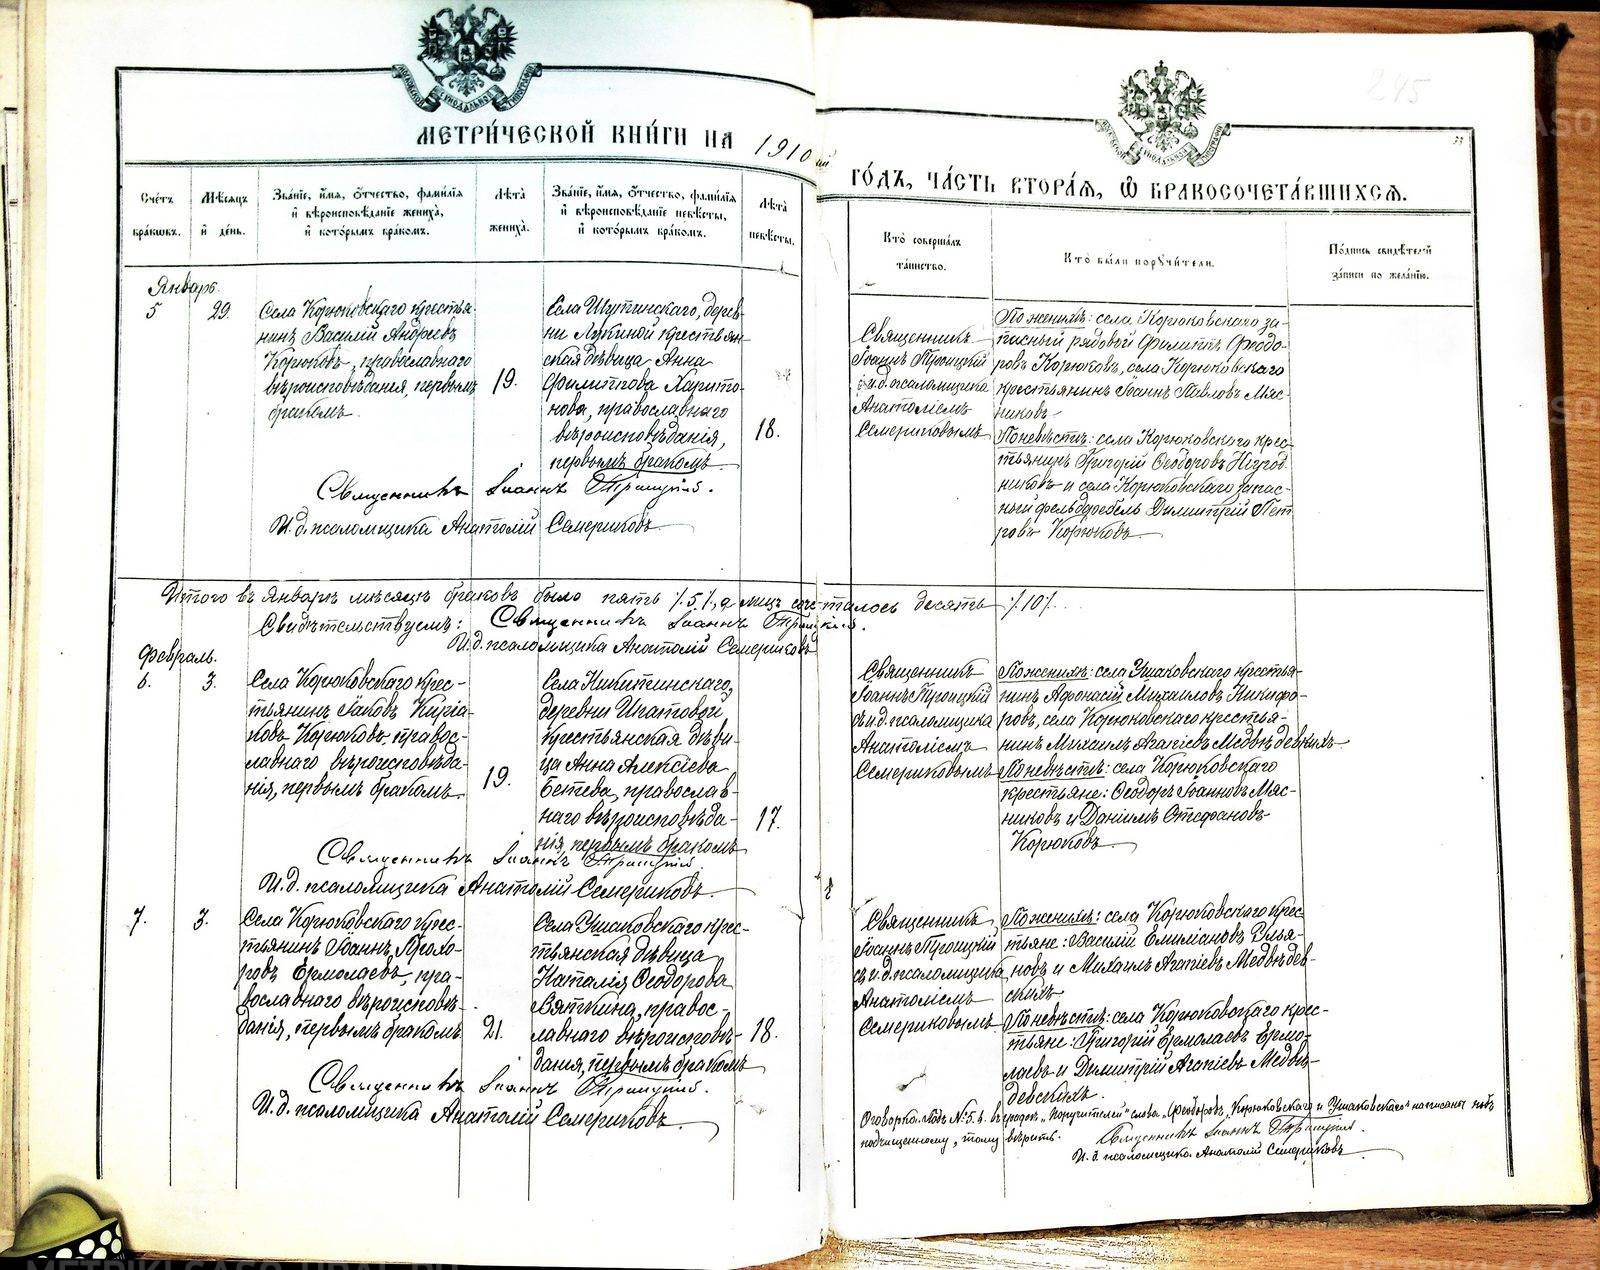 МЕТРИ́ЧЕСКОЙ КНИ́ГИ НА 1910 ый
ГО́ДЪ, ЧА́СТЬ ВТОРА́Я, Ѿ БРАКОСОЧЕТА́ВШИХСѦ.
245
Счéтъ
браковъ.
Мѣсяцъ
и день.
Зва́нїе, и́мя, о́тчество, фами́лїя
и вѣроисповѣ́данїе жениха̀,
и кото́рымъ бра́комъ.
Лѣта̀
жениха̀.
Зва́нїе, и́мя, о́тчество, фами́лїя
и вѣроисповѣ́данїе невѣ́сты,
и кото́рымъ бра́комъ.
Лѣта̀
невѣ́сты.
Кто̀ соверша́лъ
та́инство.
Кто̀ бы́ли поручи́тели.
По́дпись свидѣ́телей
за́писи по жела́нїю.
Январь.
5
29.
Села Корюковскаго крестья-
нинъ Василій Андреевъ
Корюковъ, православнаго
вѣроисповѣданія, первымъ
бракомъ.
19.
Села Шутинскаго, дерев-
ни Лукиной крестьян-
ская дѣвица Анна
Филиппова Харито-
нова, православнаго
вѣроисповѣданія,
первымъ бракомъ.
18.
Священникъ
Іоаннъ Троицкій
с и.д. псаломщика
Анатоліемъ
Семериковымъ
По женихѣ: села Корюковскаго за-
пасный рядовой Филиппъ Ѳеодо-
ровъ Корюковъ, села Корюковскаго
крестьянинъ Іоаннъ Павловъ Мяс-
никовъ.
По невѣстѣ: села Корюковскаго крес-
тьянинъ Григорій Ѳеодоровъ
никовъ и села Корюковскаго запас-
ный фельдфебель Димитрій Пет-
ровъ Корюковъ
Священникъ Іоаннъ Троицкій.
И.д. псаломщика Анатолій Семериковъ.
Итого въ Январѣ мѣсяцѣ браковъ было пять /.5./, а лицъ сочеталось десять /.10./.
Свидѣтельствуемъ: Священникъ Іоаннъ Троицкій.
И.д. псаломщика Анатолій Семериковъ
Февраль.
6.
3.
Села Корюковскаго крес-
тьянинъ Іаковъ Киріа-
ковъ Корюковъ, правос-
лавнаго вѣроисповѣда-
нія, первымъ бракомъ.
19.
Села Никитинскаго,
деревни Ипатовой
крестьянская дѣви-
ца Анна Алексіева
Бетева, православ-
наго вѣроисповѣда-
нія, первымъ бракомъ
17.
Священникъ
Іоаннъ Троицкій
съ и.д. псаломщика
Анатоліемъ
Семериковымъ
По женихѣ: села Ушаковскаго крестья-
нинъ Афонасій Михаиловъ Никифо-
ровъ, села Корюковскаго крестья-
нинъ Михаилъ Агапіевъ Медвѣдевскихъ
По невѣстѣ: села Корюковскаго
крестьяне: Ѳеодоръ Іоанновъ Мяс-
никовъ и Даніилъ Стефановъ
Корюковъ
Священникъ Іоаннъ Троицкій
И.д. псаломщика Анатолій Семериковъ.
7.
3.
Села Корюковскаго крес-
тьянинъ Іоаннъ Прохо-
ровъ Ермолаевъ, пра-
вославнаго вѣроисповѣ-
данія, первымъ бракомъ
21.
Села Ушаковскаго крес-
тьянская дѣвица
Наталія Ѳеодорова
Вяткина, правос-
лавнаго вѣроисповѣ-
данія, первымъ бракомъ
18.
Священникъ
Іоаннъ Троицкій
съ и.д. псаломщика
Анатоліемъ
Семериковымъ
По женихѣ: села Корюковскаго крес-
тьяне: Василій Емиліановъ Улья-
новъ и Михаилъ Агапіевъ Медвѣдев-
скихъ
По невѣстѣ: села Корюковскаго крес-
тьяне: Григорій Ермолаевъ Ермо-
лаевъ и Димитрій Агапіевъ Медвѣ-
девскихъ.
Священникъ Іоаннъ Троицкій.
И.д. псаломщика Анатолій Семериковъ.
Оговорка. Подъ №5.6. въ графѣ "поручителей" слова "Ѳеодоровъ, Корюковскаго и Ушаковскаго" написаны подъ
подчищенному, тому вѣрить.
Священникъ Іоаннъ Троицкій.
И.д. псаломщика Анатолій Семериковъ